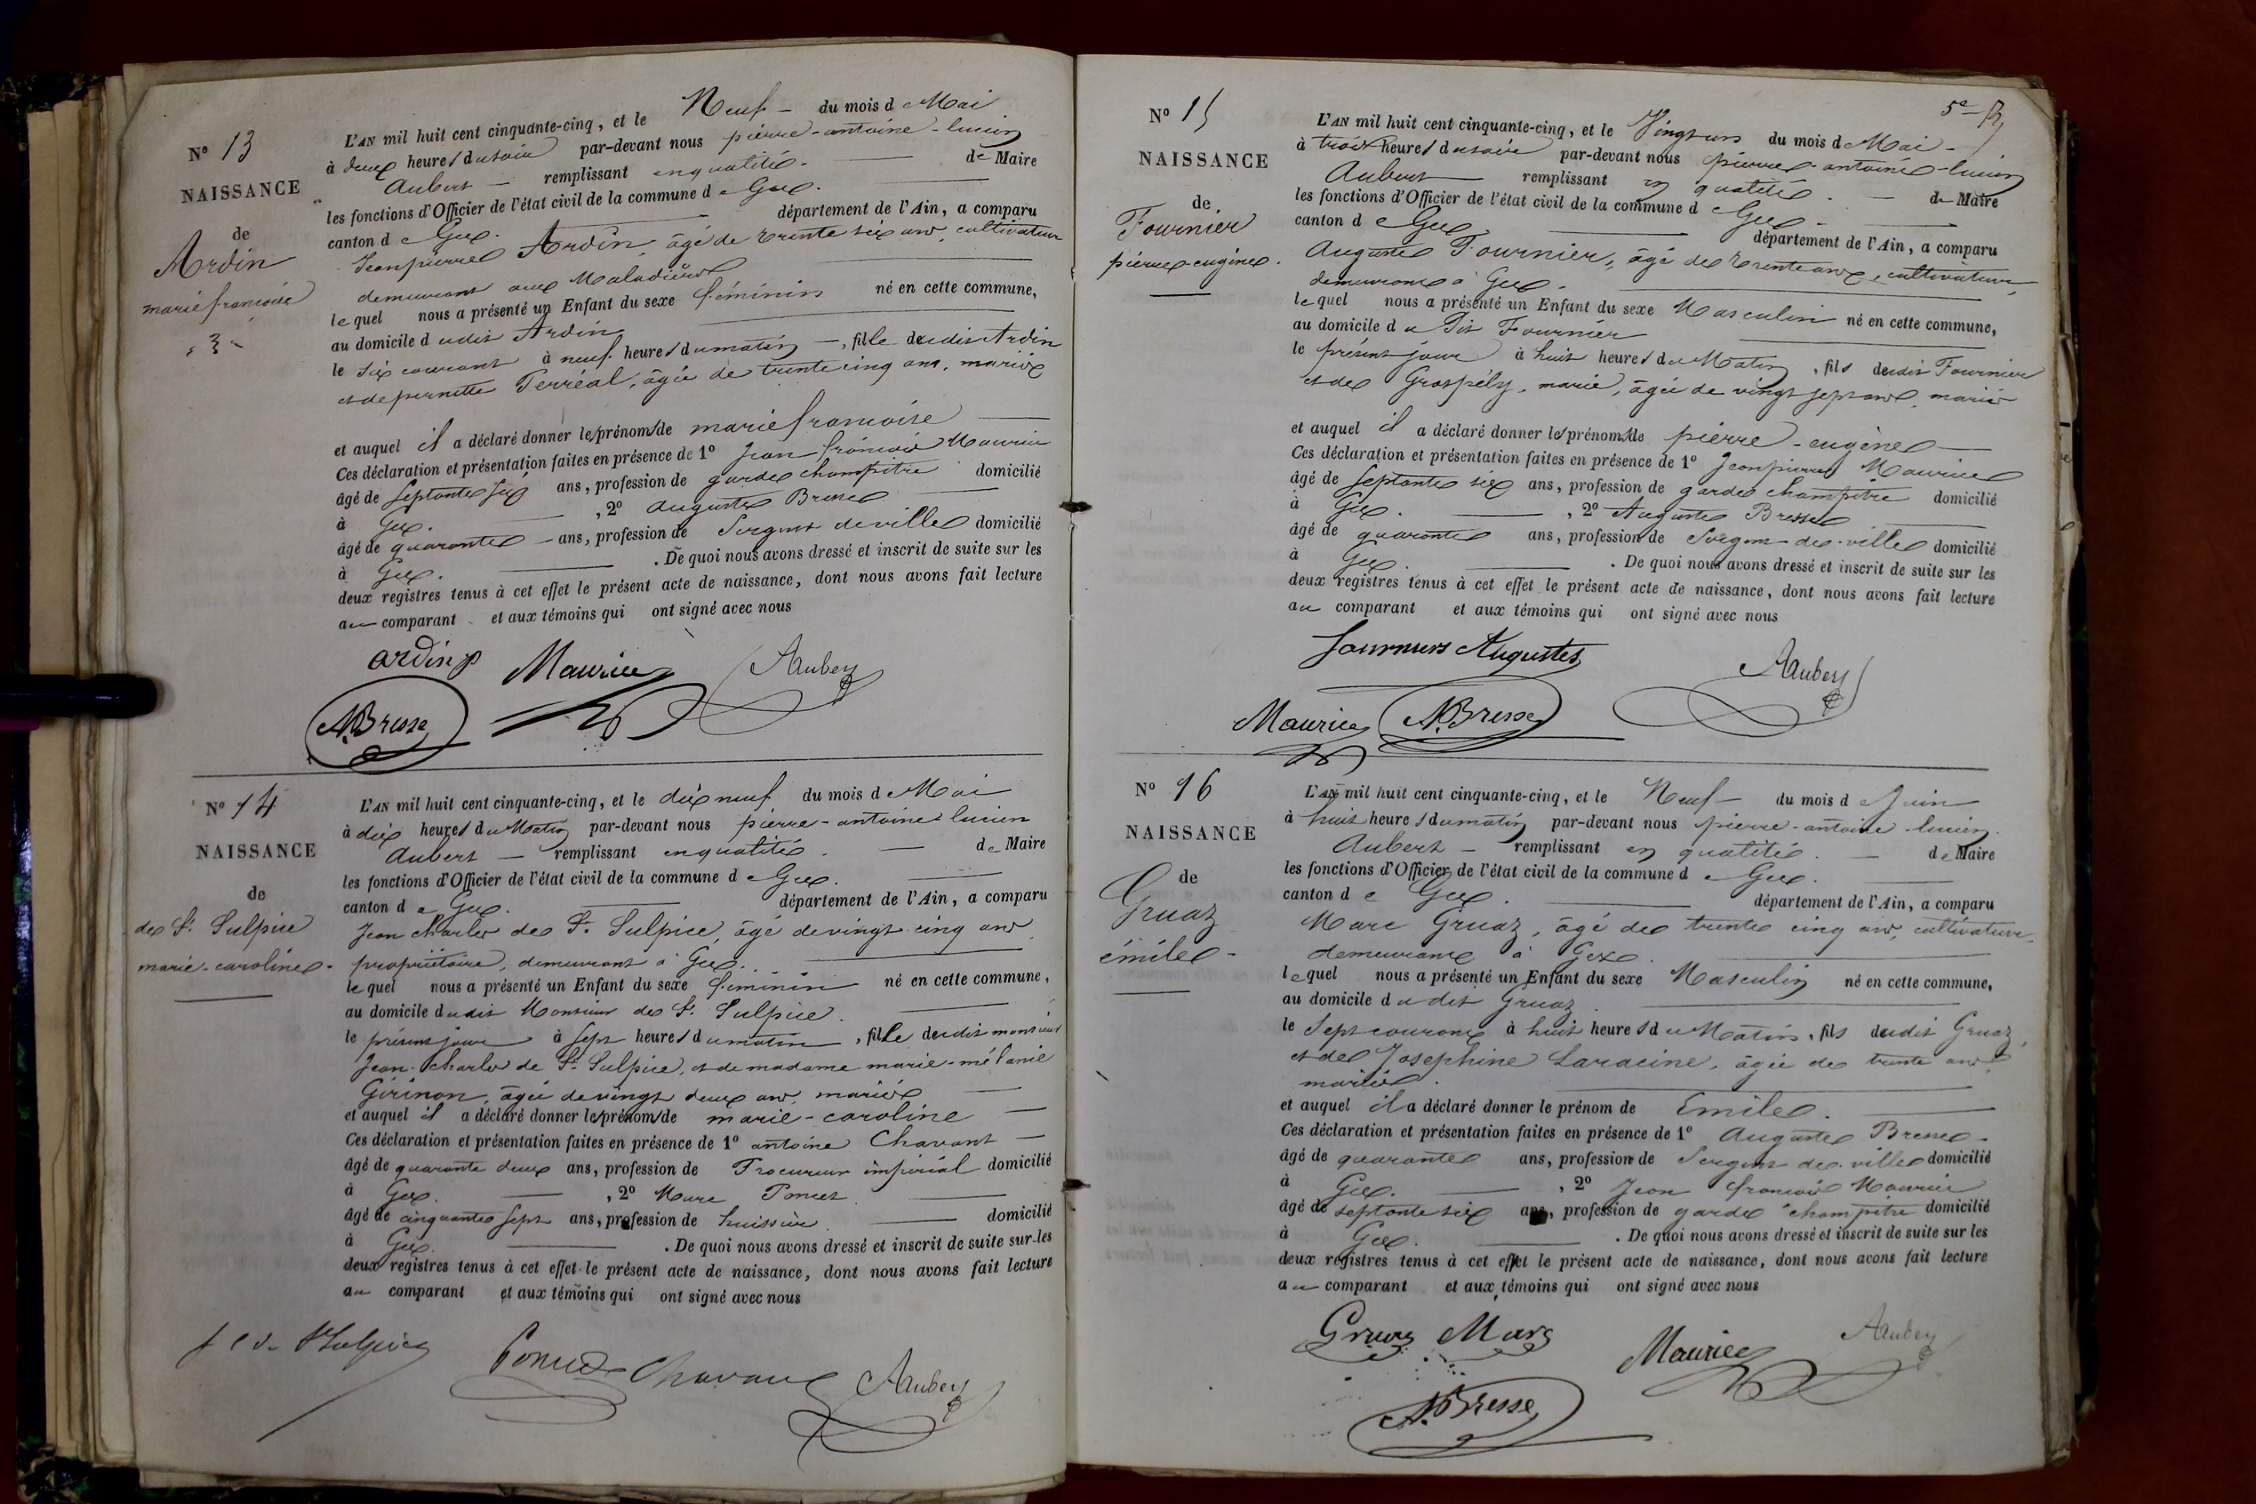 N° 13
NAISSANCE
de
Ardin
marie françoise
3
L'AN mil huit cent cinquante-cinq, et le Neuf du mois de Mai
à deux heures du soir par-devant nous pierre-antoine-lucien
Aubert remplissant en qualité de Maire
les fonctions d'Officier de l'état civil de la commune de Gex.
canton de Gex. département de l'Ain, a comparu
Jean pierre Ardin, âgé de trente six ans, cultivateur
demeurant aux Maladières
lequel nous a présenté un Enfant du sexe féminin né en cette commune,
au domicile dudit Ardin
le six courant à neuf heures du matin, fille dudit Ardin
et de pernette Perréal, âgée de trente cinq ans, mariés
et auquel il a déclaré donner les prénoms de marie françoise
Ces déclaration et présentation faites en présence de 1° Jean françois Maurice
âgé de septante six ans, profession de garde champêtre domicilié
à Gex. , 2° auguste Bresse
âgé de quarante ans, profession de Sergent de ville domicilié
à Gex. . De quoi nous avons dressé et inscrit de suite sur les
deux registres tenus à cet effet le présent acte de naissance, dont nous avons fait lecture
au comparant et aux témoins qui ont signé avec nous
ardin jp Maurice Aubery
A.Bresse
N° 14
NAISSANCE
de
de St. Sulpice
marie-caroline
L'AN mil huit cent cinquante-cinq, et le dix neuf du mois de Mai
à dix heures du Matin par-devant nous pierre-antoine lucien
Aubert remplissant en qualité de Maire
les fonctions d'Officier de l'état civil de la commune de Gex.
canton de Gex. département de l'Ain, a comparu
Jean charles de St. Sulpice, âgé de vingt cinq ans
propriétaire, demeurant à Gex.
lequel nous a présenté un Enfant du sexe féminin né en cette commune,
au domicile dudit Monsieur de St. Sulpice.
le présent jour à sept heures du matin, fille dudit monsieur
Jean-Charles de St. Sulpice, et de madame marie-mélanie
Girinon, âgée de vingt deux ans, mariés
et auquel il a déclaré donner les prénoms de marie-caroline
Ces déclaration et présentation faites en présence de 1° antoine Chavant
âgé de quarante deux ans, profession de Procureur impérial domicilié
à Gex. , 2° Marc Poncet
âgé de cinquante sept ans, profession de huissier. domicilié
à Gex. . De quoi nous avons dressé et inscrit de suite sur les
deux registres tenus à cet effet le présent acte de naissance, dont nous avons fait lecture
au comparant et aux témoins qui ont signé avec nous
J C de St Sulpice Poncet Chavant Aubery
5e
N° 15
NAISSANCE
de
Fournier
pierre eugène.
L'AN mil huit cent cinquante-cinq, et le Vingt un du mois de Mai
à trois heures du soir par-devant nous pierre-antoine-lucien
Aubert remplissant en qualité de Maire
les fonctions d'Officier de l'état civil de la commune de Gex
canton de Gex département de l'Ain, a comparu
Auguste Fournier, âgé de trente ans, cultivateur,
demeurant à Gex.
lequel nous a présenté un Enfant du sexe Masculin né en cette commune,
au domicile du dit Fournier
le présent jour à huit heures du Matin, fils dudit Fournier
et de Grospély, marie, âgée de vingt sept ans, mariés
et auquel il a déclaré donner les prénoms de pierre-eugène
Ces déclaration et présentation faites en présence de 1° Jean pierre Maurice
âgé de septante six ans, profession de garde champêtre domicilié
à Gex. , 2° Auguste Bresse
âgé de quarante ans, profession de Sergent de ville domicilié
à Gex. . De quoi nous avons dressé et inscrit de suite sur les
deux registres tenus à cet effet le présent acte de naissance, dont nous avons fait lecture
au comparant et aux témoins qui ont signé avec nous
Auguste Aubery
Maurice A.Bresse
N° 16
NAISSANCE
de
Gruaz
émile
L'AN mil huit cent cinquante-cinq, et le Neuf du mois de Juin
à huit heures du matin par-devant nous pierre-antoine-lucien
Aubert remplissant en qualité de Maire
les fonctions d'Officier de l'état civil de la commune de Gex.
canton de Gex. département de l'Ain, a comparu
Marc Gruaz, âgé de trente cinq ans, cultivateur
demeurant à Gex
lequel nous a présenté un Enfant du sexe Masculin né en cette commune,
au domicile dudit Gruaz
le Sept courant à huit heures du Matin, fils dudit Gruaz,
et de Josephine Laracine, âgée de trente ans
mariés.
et auquel il a déclaré donner le prénom de Emile.
Ces déclaration et présentation faites en présence de 1° Auguste Bresse
âgé de quarante ans, profession de Sergent de ville domicilié
à Gex. , 2° Jean françois Maurice
âgé de septante six ans, profession de garde champêtre domicilié
à Gex. . De quoi nous avons dressé et inscrit de suite sur les
deux registres tenus à cet effet le présent acte de naissance, dont nous avons fait lecture
au comparant et aux témoins qui ont signé avec nous
Gruaz Marc Maurice Aubery
A.Bresse